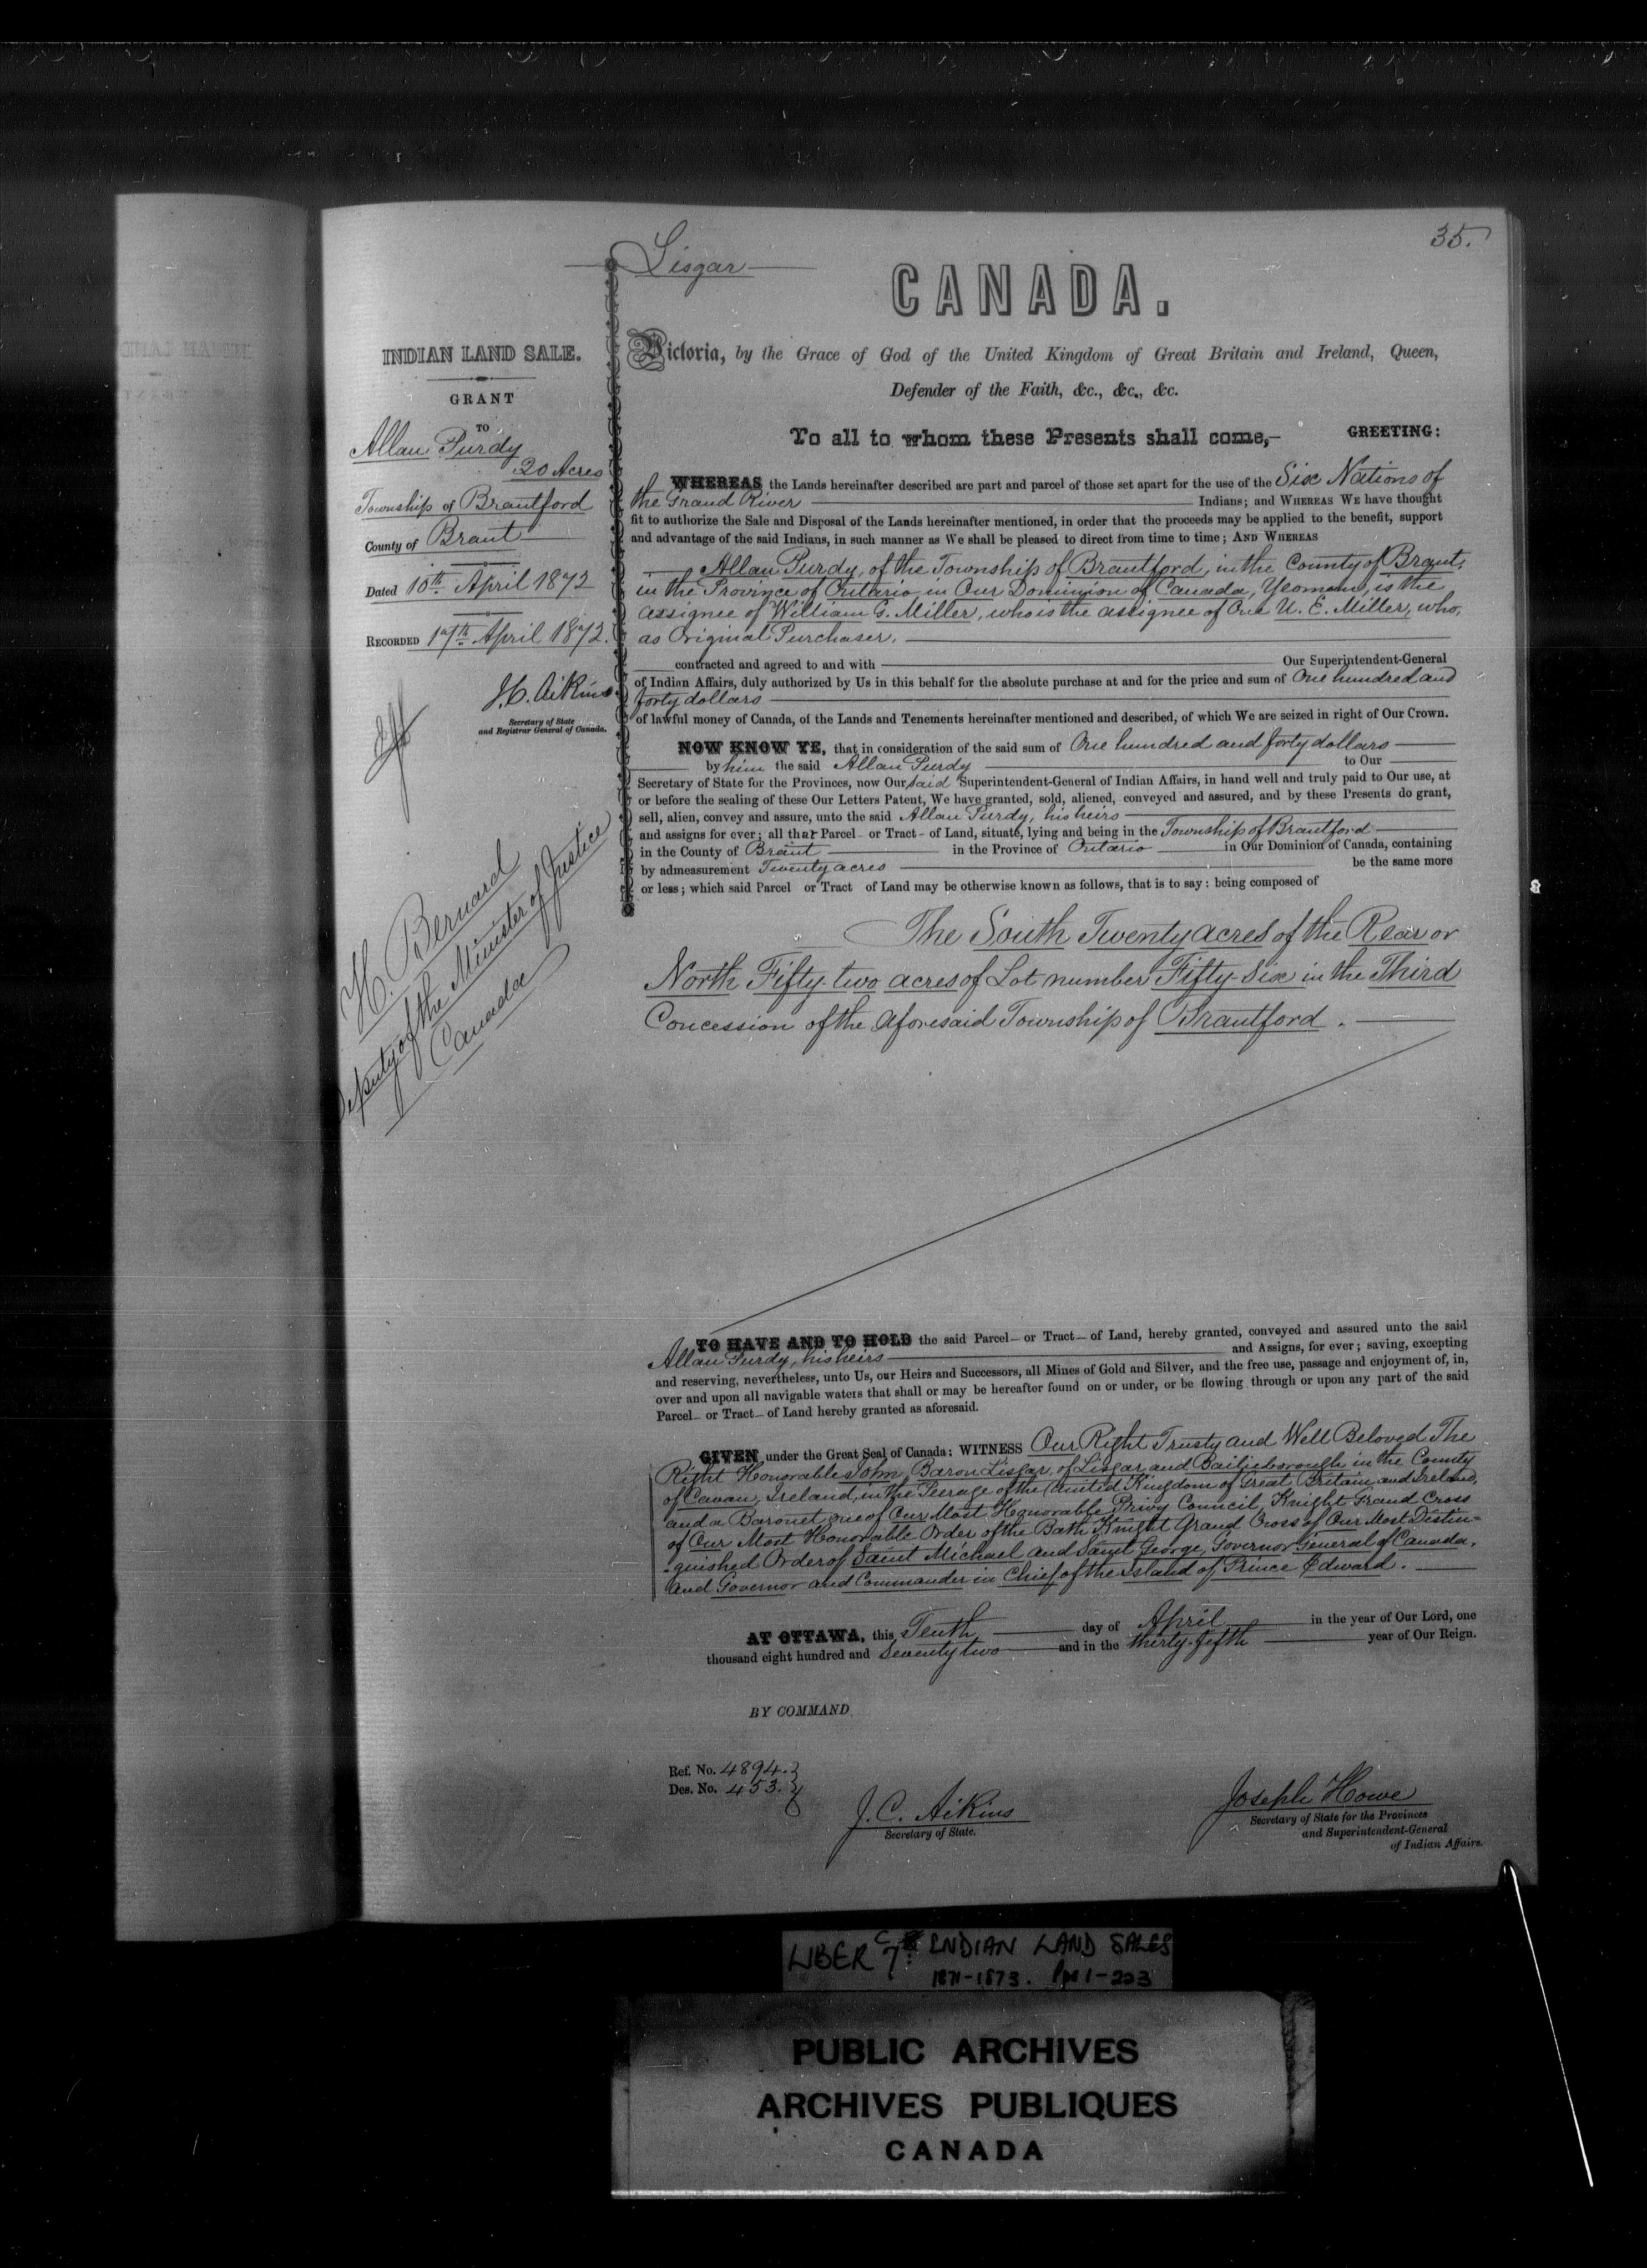 35.
Lisgar
CANADA.
Victoria, by the Grace of God of the United Kingdom of Great Britain and Ireland, Queen,
Defender of the Faith, &c., &c., &c.
To all to whom these Presents shall come,— GREETING:
INDIAN LAND SALE.
GRANT
TO
Allan Purdy
20 Acres
Township of Brantford
County of Brant
Dated 10th April 1872
RECORDED 17th April 1872.
J.C. Aikins
Secretary of State
and Registrar General of Canada.
H. Bernard
Deputy of the Minister of Justice
Canada
WHEREAS the Lands hereinafter described are part and parcel of those set apart for the use of the Six Nations of
the Grand River Indians; and WHEREAS WE have thought
fit to authorize the Sale and Disposal of the Lands hereinafter mentioned, in order that the proceeds may be applied to the benefit, support
and advantage of the said Indians, in such manner as We shall be pleased to direct from time to time; AND WHEREAS
Allan Purdy, of the Township of Brantford, in the County of Brant,
in the Province of Ontario in Our Dominion of Canada, Yeoman, is the
assignee of William G. Miller, who is the assignee of One U. E. Miller, who,
as Original Purchaser,
contracted and agreed to and with Our Superintendent-General
of Indian Affairs, duly authorized by Us in this behalf for the absolute purchase at and for the price and sum of One hundred and
forty dollars
of lawful money of Canada, of the Lands and Tenements hereinafter mentioned and described, of which We are seized in right of Our Crown.
NOW KNOW YE, that in consideration of the said sum of One hundred and forty dollars
by him the said Allan Purdy to Our
Secretary of State for the Provinces, now Our said Superintendent-General of Indian Affairs, in hand well and truly paid to Our use, at
or before the sealing of these Our Letters Patent, We have granted, sold, aliened, conveyed and assured, and by these Presents do grant,
sell, alien, convey and assure, unto the said Allan Purdy, his heirs
and assigns for ever; all that Parcel or Tract of Land, situate, lying and being in the Township of Brantford
in the County of Brant in the Province of Ontario in Our Dominion of Canada, containing
by admeasurement Twenty acres be the same more
or less; which said Parcel or Tract of Land may be otherwise known as follows, that is to say: being composed of
The South Twenty acres of the Rear or
North Fifty-two acres of Lot number Fifty-Six in the Third
Concession of the aforesaid Township of Brantford.
TO HAVE AND TO HOLD the said Parcel or Tract of Land, hereby granted, conveyed and assured unto the said
Allan Purdy, his heirs and Assigns, for ever; saving, excepting
and reserving, nevertheless, unto Us, our Heirs and Successors, all Mines of Gold and Silver, and the free use, passage and enjoyment of, in,
over and upon all navigable waters that shall or may be hereafter found on or under, or be flowing through or upon any part of the said
Parcel or Tract of Land hereby granted as aforesaid.
GIVEN under the Great Seal of Canada: WITNESS Our Right Trusty and Well Beloved The
Right Honorable John, Baron Lisgar, of Lisgar and Bailieborough in the County
of Cavan, Ireland, in the Peerage of the United Kingdom of Great Britain and Ireland,
and a Baronet, one of Our Most Honorable Privy Council, Knight Grand Cross
of Our Most Honorable Order of the Bath Knight Grand Cross of Our Most Distin=
=guished Order of Saint Michael and Saint George, Governor General of Canada,
and Governor and Commander in Chief of the Island of Prince Edward.
AT OTTAWA, this Tenth day of April in the year of Our Lord, one
thousand eight hundred and Seventy two and in the thirty-fifth year of Our Reign.
BY COMMAND
Ref. No. 4894.
Des. No. 453.
J. C. Aikins
Secretary of State.
Joseph Howe
Secretary of State for the Provinces
and Superintendent-General
of Indian Affairs.
LIBER C 7 INDIAN LAND SALES
1871-1873. Pps 1-223
PUBLIC ARCHIVES
ARCHIVES PUBLIQUES
CANADA